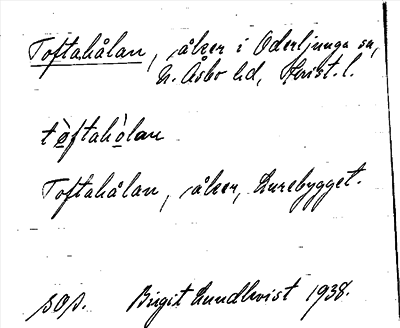 Toftahålan, åker i Oderljunga sn,
N. Åsbo hd, Krist. l.
tòftahòlan
Toftahålan, åker, Lurebygget.
sop. Birgit Lundkvist 1938.